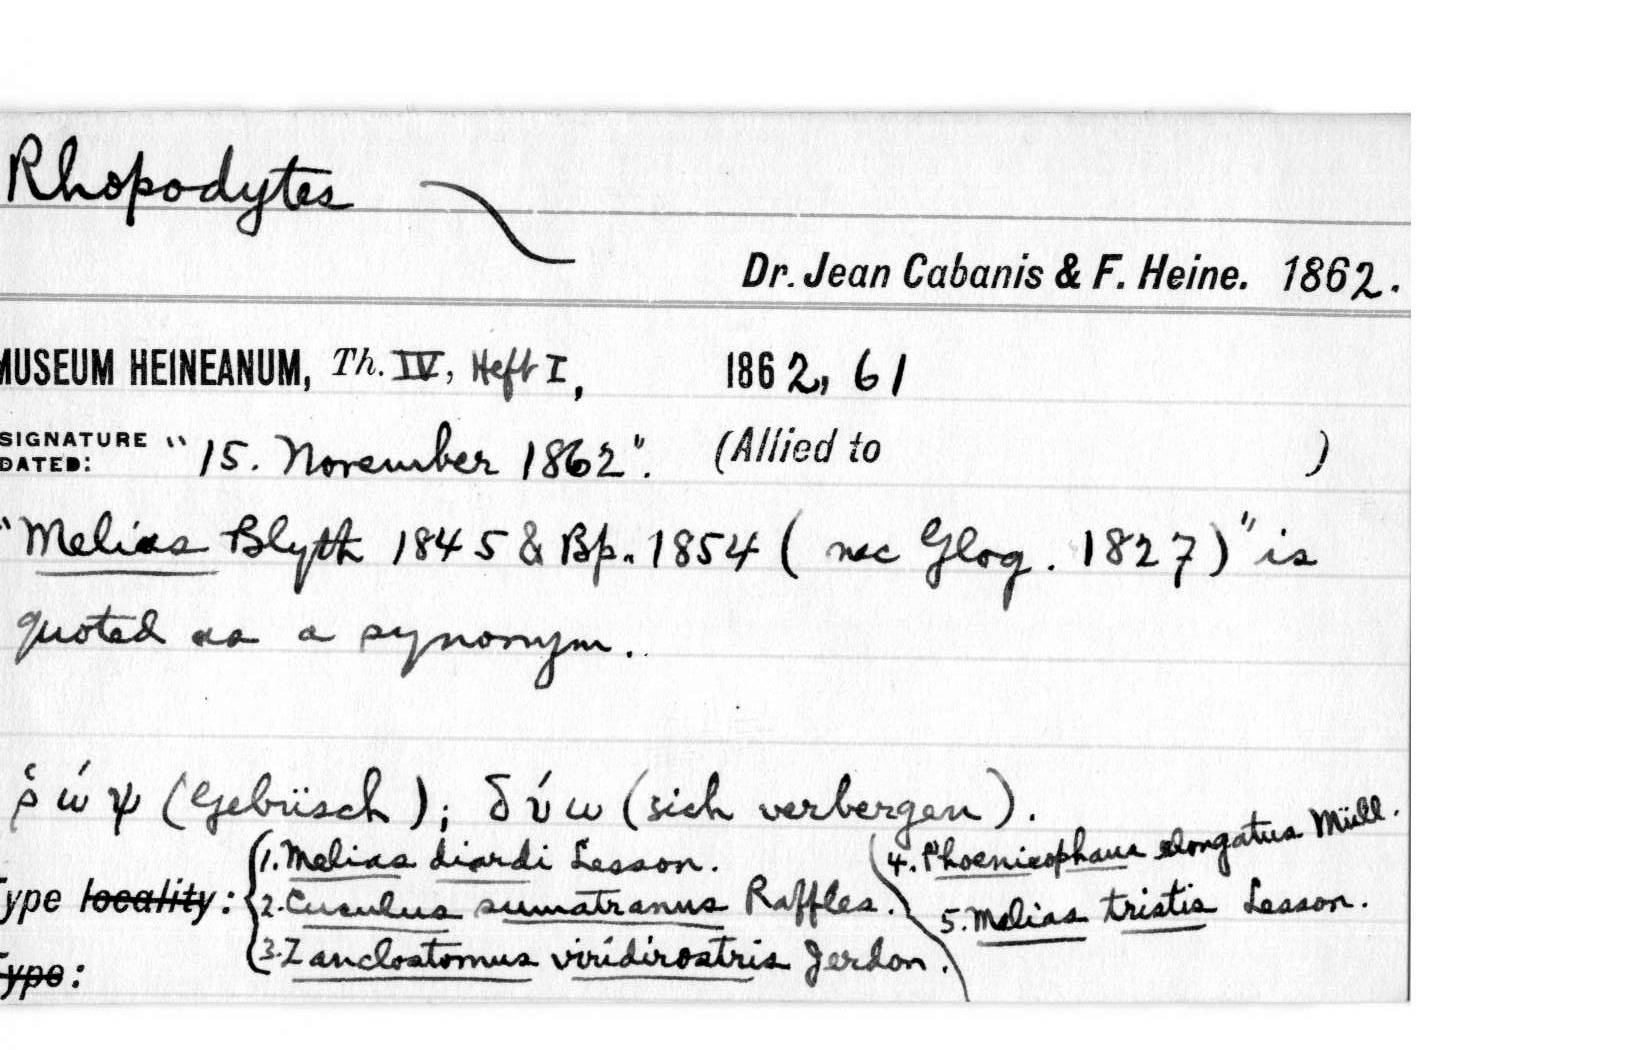 Rhopodytes
Dr. Jean Cabanis & F. Heine. 1862.
MUSEUM HEINEANUM, Th. IV, Heft I, 1862, 61
SIGNATURE DATED: "15. November 1862". (Allied to )
"Melias Blyth 1845 & Bp. 1854 ( nec Glog. 1827)" is
quoted as a synonym.
ῥώψ (Gebüsch); δύω (sich verbergen).
Type locality: {1. Melias diardi Lesson.
2. Cuculus sumatranus Raffles.
3. Zanclostomus viridirostris Jerdon.
4. Phoenicophaus elongatus Müll.
5. Melias tristis Lesson.
Type: